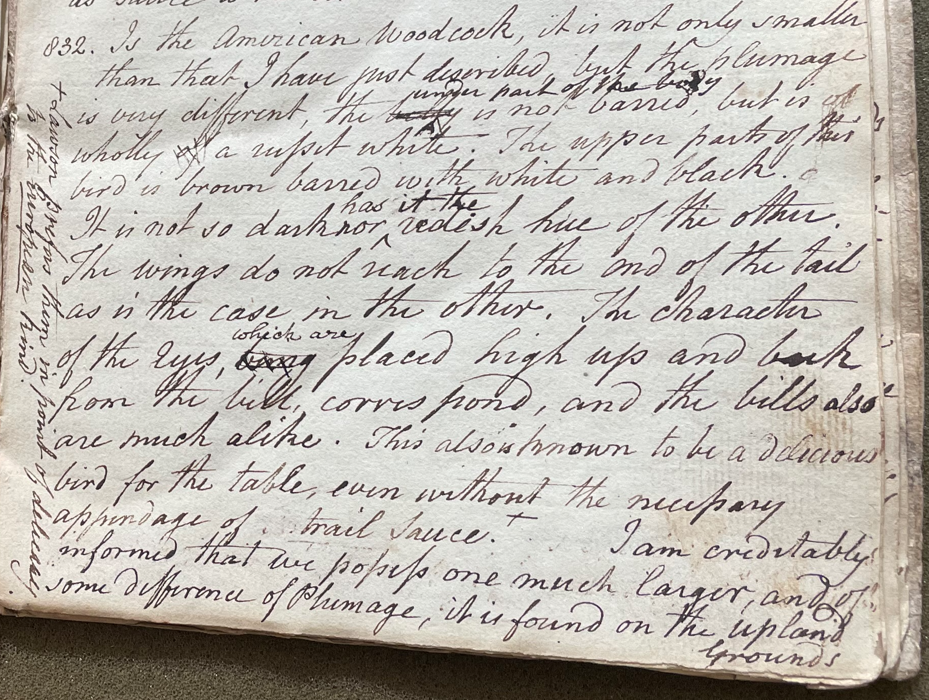 as sauce is
832. Is the American Woodcock, it is not only smaller
than that I have just described, but the plumage
under part of the body
is very different, the belly is not barred, but is of
wholly a rufset white. The upper parts of this
bird is brown barred with white and black.
has it the
It is not so dark nor redish hue of the other.
The wings do not reach to the end of the tail
as is the case in the other. The character
which are
of the Eyes, being placed high up and back
from the bill, correspond, and the bills also
are much alike. This also is known to be a delicious
bird for the table, even without the necefsary
appendage of trail sauce. +
I am creditably
informed that we pofsefs one much larger, and of
some difference of Plumage, it is found on the upland
Grounds
+ Lawson prefers them in point of delicacy
to the European kind.